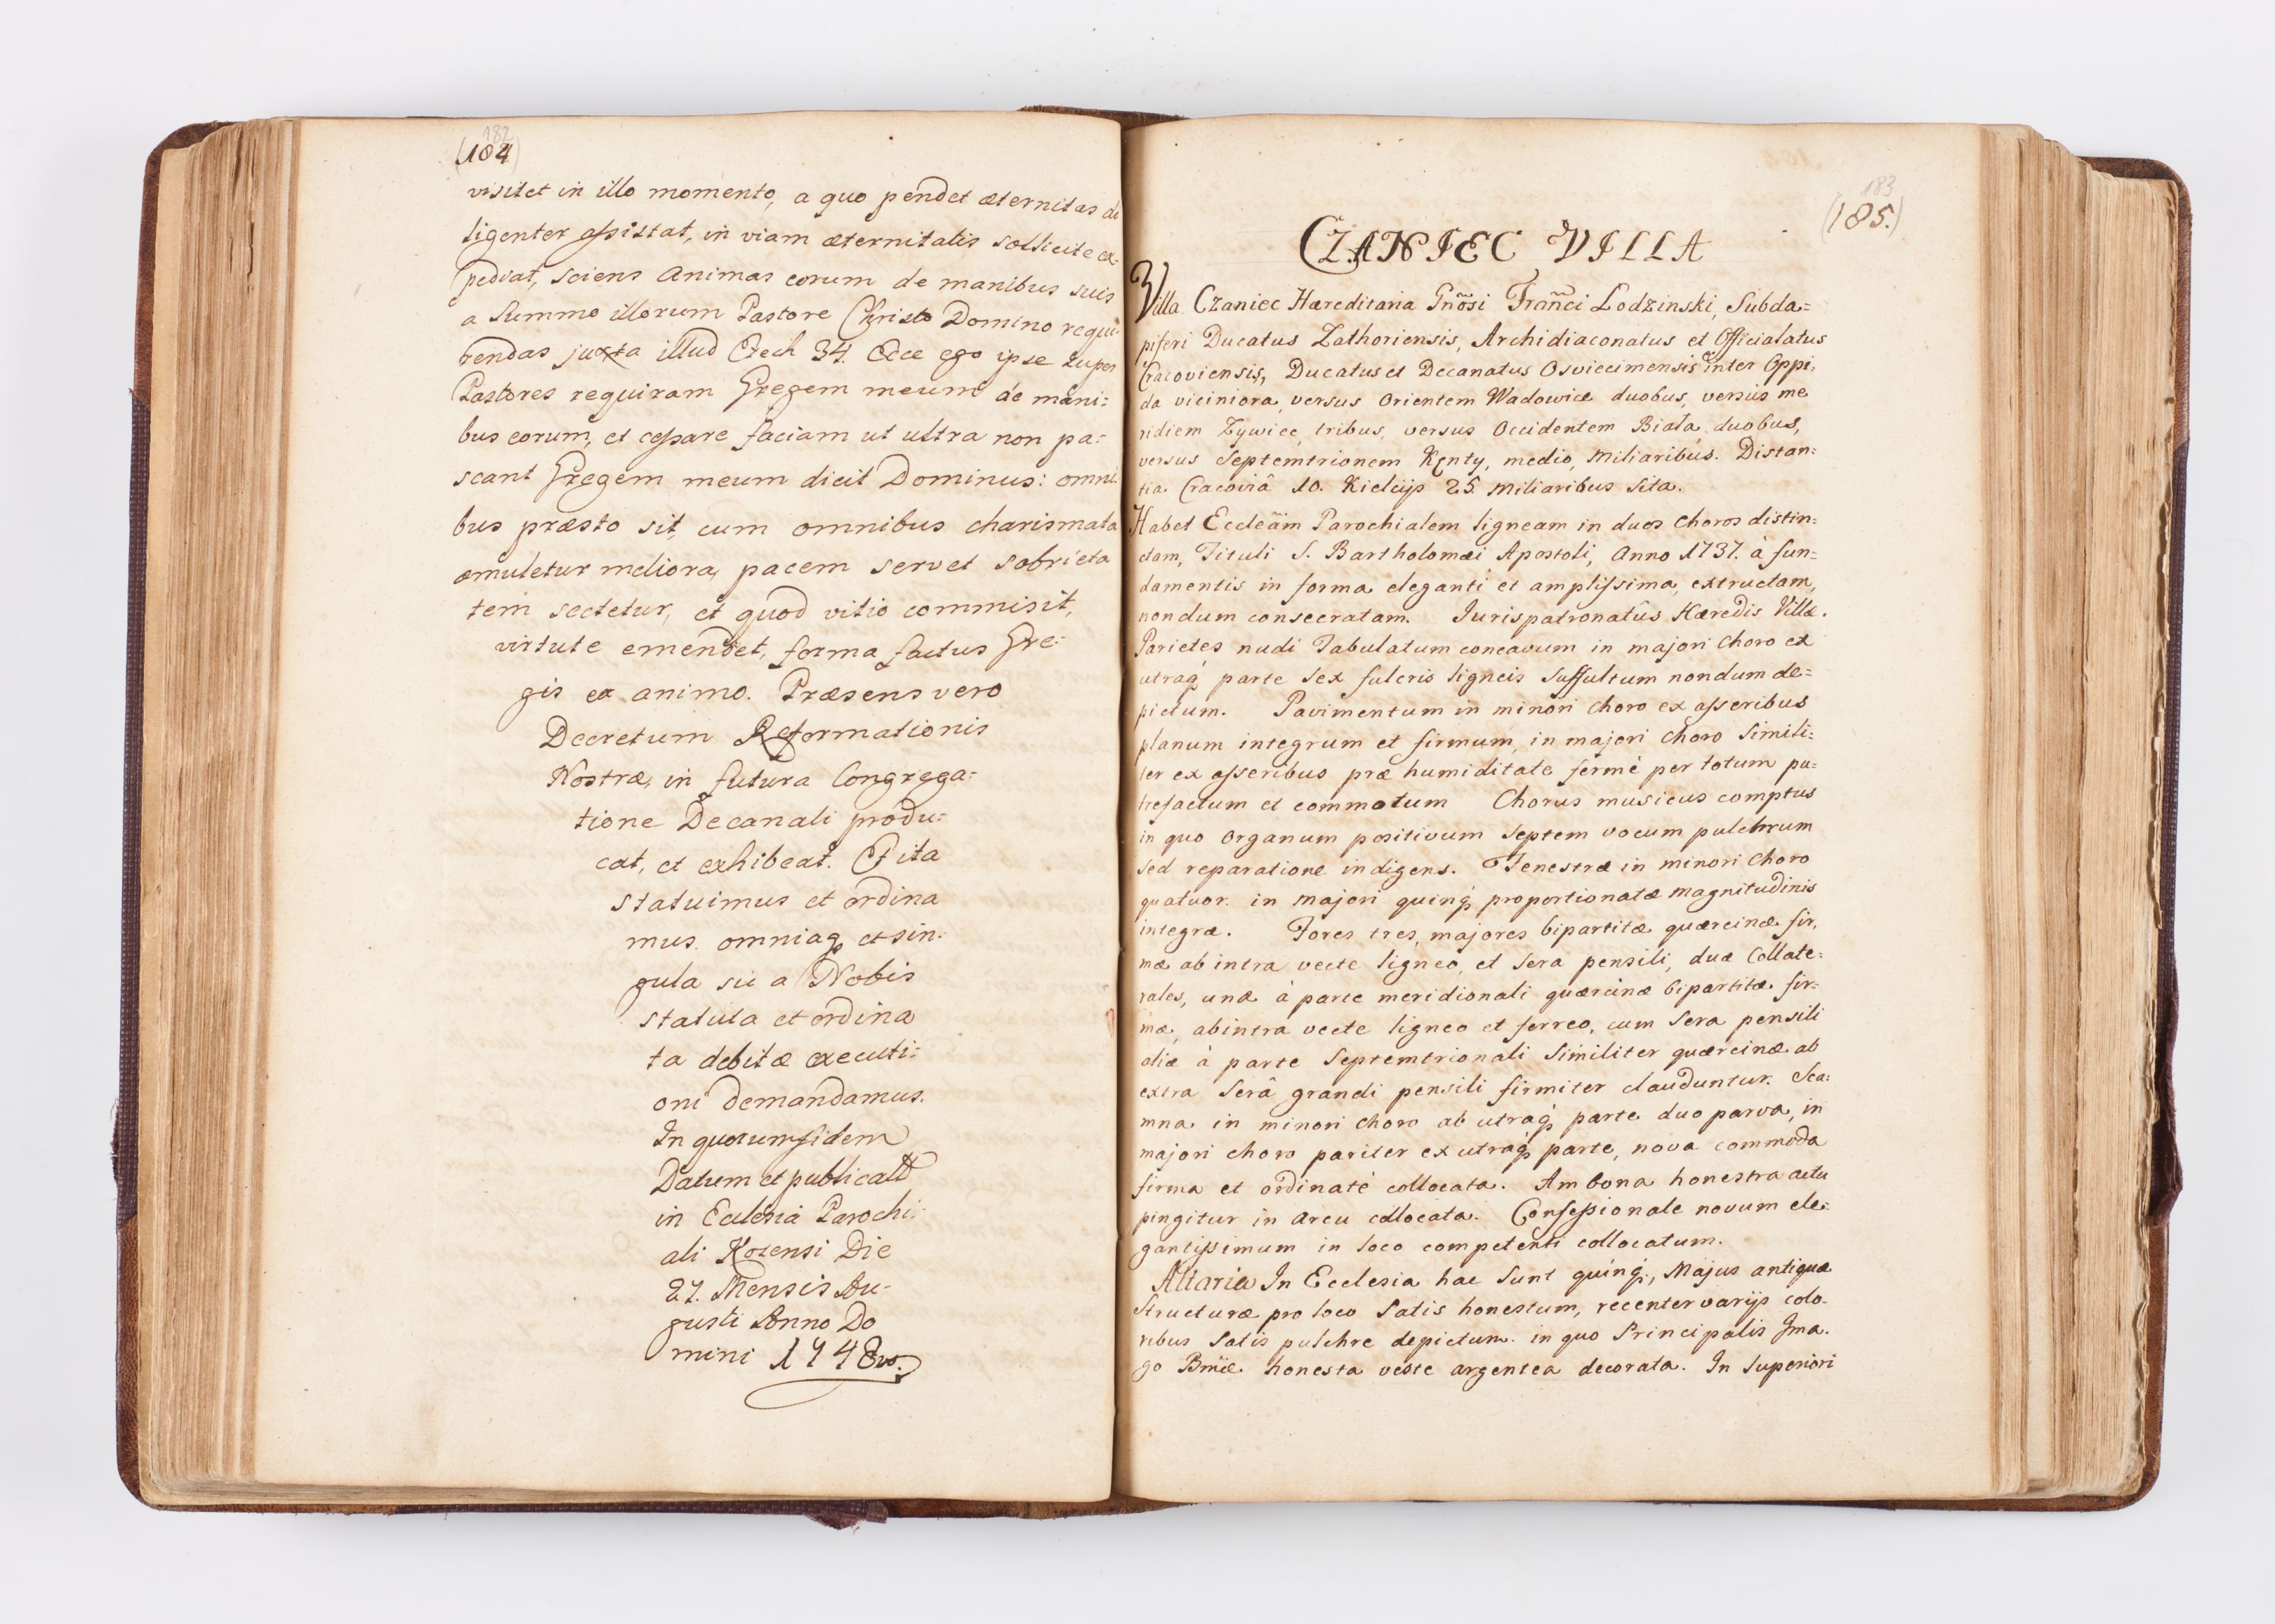 182
(184)
visitet in illo momento, a quo pendet æternitas di
ligenter assistat, in viam æternitatis sollicite ex-
pediat, sciens Animas eorum de manibus suis
a Summo illorum Pastore Christo Domino requi
rendas juxta illud Ezech 34. Ecce ego ipse super
Pastores requiram Gregem meum de mani:
bus eorum, et cessare faciam ut ultra non pa:
scant Gregem meum dicit Dominus: omni
bus præsto sit, cum omnibus charismata
æmuletur meliora, pacem servet sobrieta
tem sectetur, et quod vitio commisit,
virtute emendet, forma factus Gre:
gis ex animo. Præsens vero
Decretum Reformationis
Nostræ, in futura Congrega:
tione Decanali produ:
cat, et exhibeat. Et ita
statuimus et ordina
mus. omniaq; et sin-
gula sic a Nobis
statuta et ordina
ta debitæ executi:
oni demandamus.
In quorum fidem
Datum et publicatũ
in Ecclesia Parochi:
ali Kozensi Die
27. Mensis Au-
gusti Anno Do
mini 1748vo.
183
(185.)
CZANIEC VILLA
Villa Czaniec Hæreditaria Gnõsi Frañci Lodzinski, Subda=
piferi Ducatus Zathoriensis, Archidiaconatus et Officialatus
Cracoviensis, Ducatus et Decanatus Osviecimensis inter Oppi:
da viciniora, versus Orientem Wadowice duobus, versus me
ridiem Zywiec, tribus, versus Occidentem Biała duobus,
versus Septemtrionem Kęnty, medio, miliaribus. Distan:
tia Cracoviâ 10. Kielcijs 25 miliaribus sita.
Habet Eccleãm Parochialem ligneam in duos Choros distin=
ctam, Tituli S. Bartholomæi Apostoli, Anno 1737. à fun=
damentis in forma eleganti et amplissima, extructam,
nondum consecratam. Jurispatronatûs Hæredis Villæ.
Parietes nudi Tabulatum concavum in majori Choro ex
utraq; parte sex fulcris ligneis suffultum nondum de=
pictum. Pavimentum in minori Choro ex asseribus
planum integrum et firmum, in majori Choro simili:
ter ex asseribus præ humiditate fermè per totum pu=
trefactum et commotum Chorus musicus comptus
in quo Organum positivum septem vocum pulchrum
sed reparatione indigens. Fenestræ in minori Choro
quatuor. in majori quinq; proportionatæ magnitudinis
integræ. Fores tres, majores bipartitæ quæreinæ fir,
mæ ab intra vecte ligneo, et sera pensili, duæ Collate:
rales, unæ à parte meridionali quæreinæ bipartitæ fir=
mæ, abintra vecte ligneo et ferreo, cum sera pensili
aliæ à parte Septemtrionali similiter quæreinæ ab
extra Serâ grandi pensili firmiter clauduntur. Sca:
mna in minori Choro ab utraq; parte duo parva, in
majori Choro pariter ex utraq; parte, nova commoda
firma et ordinatè collocata. Ambona honestra actu
pingitur in Arcu collocata. Confessionale novum ele:
gantissimum in loco competenti collocatum.
Altaria In Ecclesia hac sunt quinq;, Majus antiquæ
Structuræ pro loco satis honestum, recenter varijs colo-
ribus satis pulchre depictum. in quo Principalis Ima-
go Bmæ honesta veste argentea decorata. In Superiori